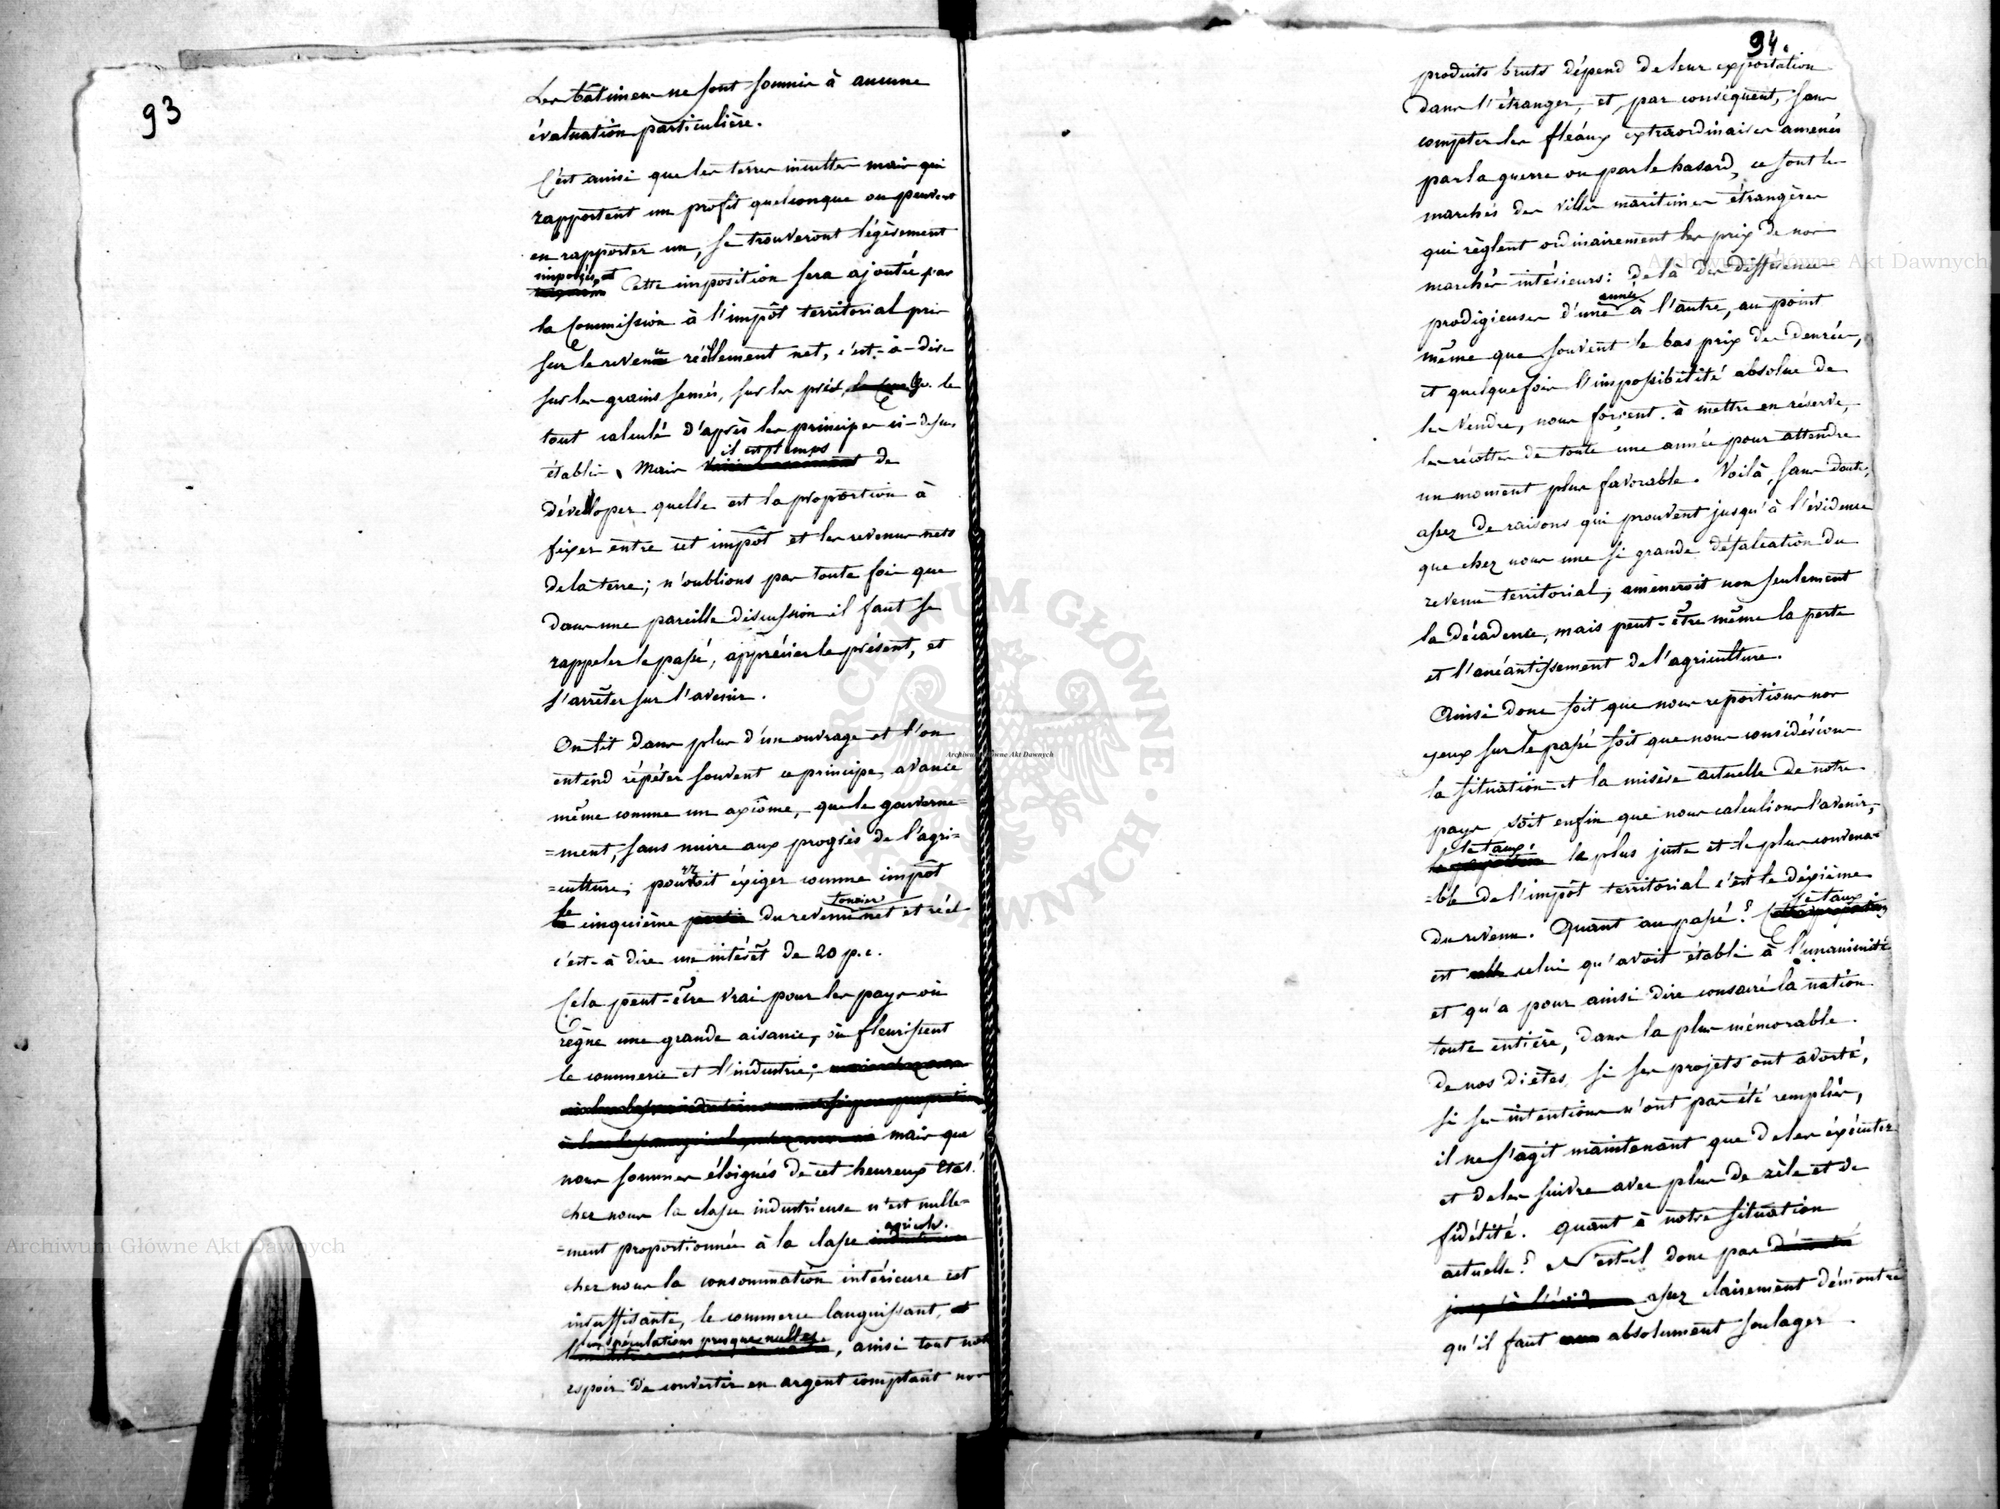 93
Les batimens ne sont soumis à aucune
évaluation particulière.
C'est ainsi que les terres incultes mais qui
rapportent un profit quelconque ou peuvent
en rapporter un, se trouveront légèrement
imposés, et
Cette imposition sera ajoutée par
la Commission à l'impôt territorial pris
sur le revenu réellement net, c'est-à-dire
sur les grains semés, sur les prés, &c. le
tout calculé d'après les principes ci-dessus
il est temps
établis. Mais de
développer quelle est la proportion à
fixer entre cet impôt et les revenus nets
de la terre; n'oublions pas toute fois que
dans une pareille discussion il faut se
rappeler le passé, apprécier le présent, et
s'arrêter sur l'avenir.
On lit dans plus d'un ouvrage et l'on
entend répéter souvent ce principe, avancé
même comme un axiôme, que le gouverne=
=ment, sans nuire aux progrès de l'agri=
=culture, pourroit éxiger comme impôt
foncier
le cinquième du revenu net et réel
c'est-à dire un intérêt de 20 p.c.
Cela peut-être vrai pour les pays où
règne une grande aisance, où fleurissent
le commerce et l'industrie;
mais que
nous sommes éloignés de cet heureux état!
chez nous la classe industrieuse n'est nulle=
agricole.
=ment proportionnée à la classe
chez nous la consommation intérieure est
insuffisante, le commerce languissant, et
les spéculations presque nulles
, ainsi tout notre
espoir de convertir en argent comptant nos
94.
produits bruts dépend de leur exportation
dans l'étranger, et par conséquent, sans
compter les fléaux extraordinaires amenés
par la guerre ou par le hasard, ce sont les
marchés des villes maritimes étrangères
qui règlent ordinairement les prix de nos
marchés intérieurs: de là des différences
année
prodigieuses d'une à l'autre, au point
même que souvent le bas prix des denrées,
et quelquefois l'impossibilité absolue de
les vendre, nous forcent à mettre en réserve,
les récoltes de toute une année pour attendre
un moment plus favorable. Voilà, sans doute,
assez de raisons qui prouvent jusqu'à l'évidence
que chez nous une si grande défalcation du
revenu territorial, amèneroit non seulement
la décadence, mais peut-être même la perte
et l'anéantissement de l'agriculture.
Ainsi donc soit que nous reportions nos
yeux sur le passé soit que nous considérions
la situation et la misère actuelle de notre
pays, soit enfin que nous calculions l'avenir,
le taux
le plus juste et le plus convena=
=ble de l'impôt territorial c'est le dixième
Ce taux
du revenu. Quant au passé?
est celui qu'avoit établi à l'unanimité
et qu'a pour ainsi dire consacré la nation
toute entière, dans la plus mémorable
de nos diètes. si ses projets ont avorté,
si ses intentions n'ont pas été remplies,
il ne s'agit maintenant que de les éxécuter
et de les suivre avec plus de zèle et de
fidélité. Quant à notre situation
actuelle? N'est-il donc pas
assez clairement démontré
qu'il faut absolument soulager
Archiwum Główne Akt Dawnych
Archiwum Główne Akt Dawnych
Archiwum Główne Akt Dawnych
ARCHIWUM GŁÓWNE AKT DAWNYCH